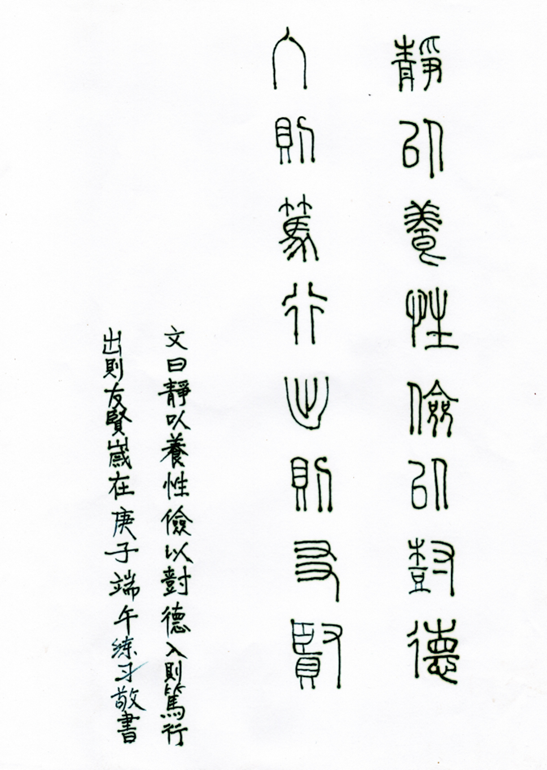 靜以養性儉以尌德
入則篤行出則友賢
文曰靜以養性儉以尌德入則篤行
出則友賢歲在庚子端午練习敬書